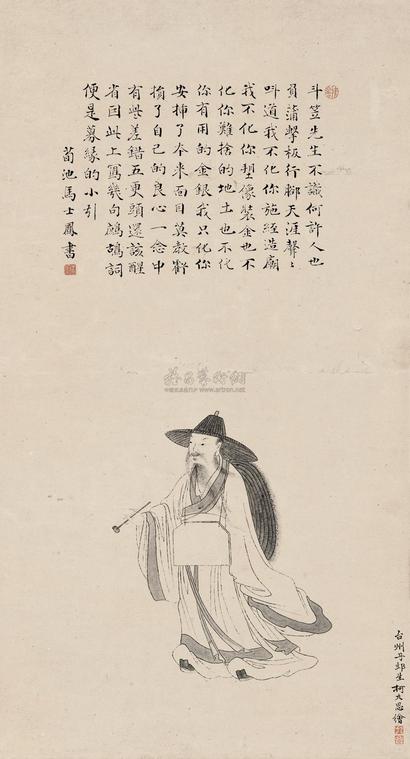 斗笠先生不識何許人也
負蒲擊板行腳天涯聲〻
叫道我不化你施經造廟
我不化你塑像裝金也不
化你難捨的地土也不化
你有用的金銀我只化你
安排了本來面目莫教虧
損了自己的良心一念中
有些差錯五更頭還該醒
省因此上寫幾句鷓鴣詞
便是募緣的小引
荀池馬士鳳書
台州丹邱生柯九思繪